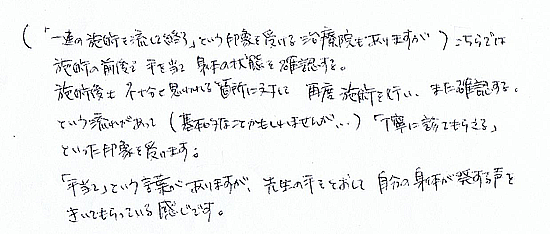 (「一連の施術を流して終る」という印象を受ける治療院もありますが)こちらでは
施術の前後で手を当て身体の状態を確認する。
施術後も不十分と思われる箇所に対して再度施術を行い、また確認する。
という流れがあって(基本的なことかもしれませんが、、)「丁寧に診てもらえる」
といった印象を受けます。
「手当て」という言葉がありますが、先生の手をとおして自分の身体が発する声を
きいてもらっている感じです。